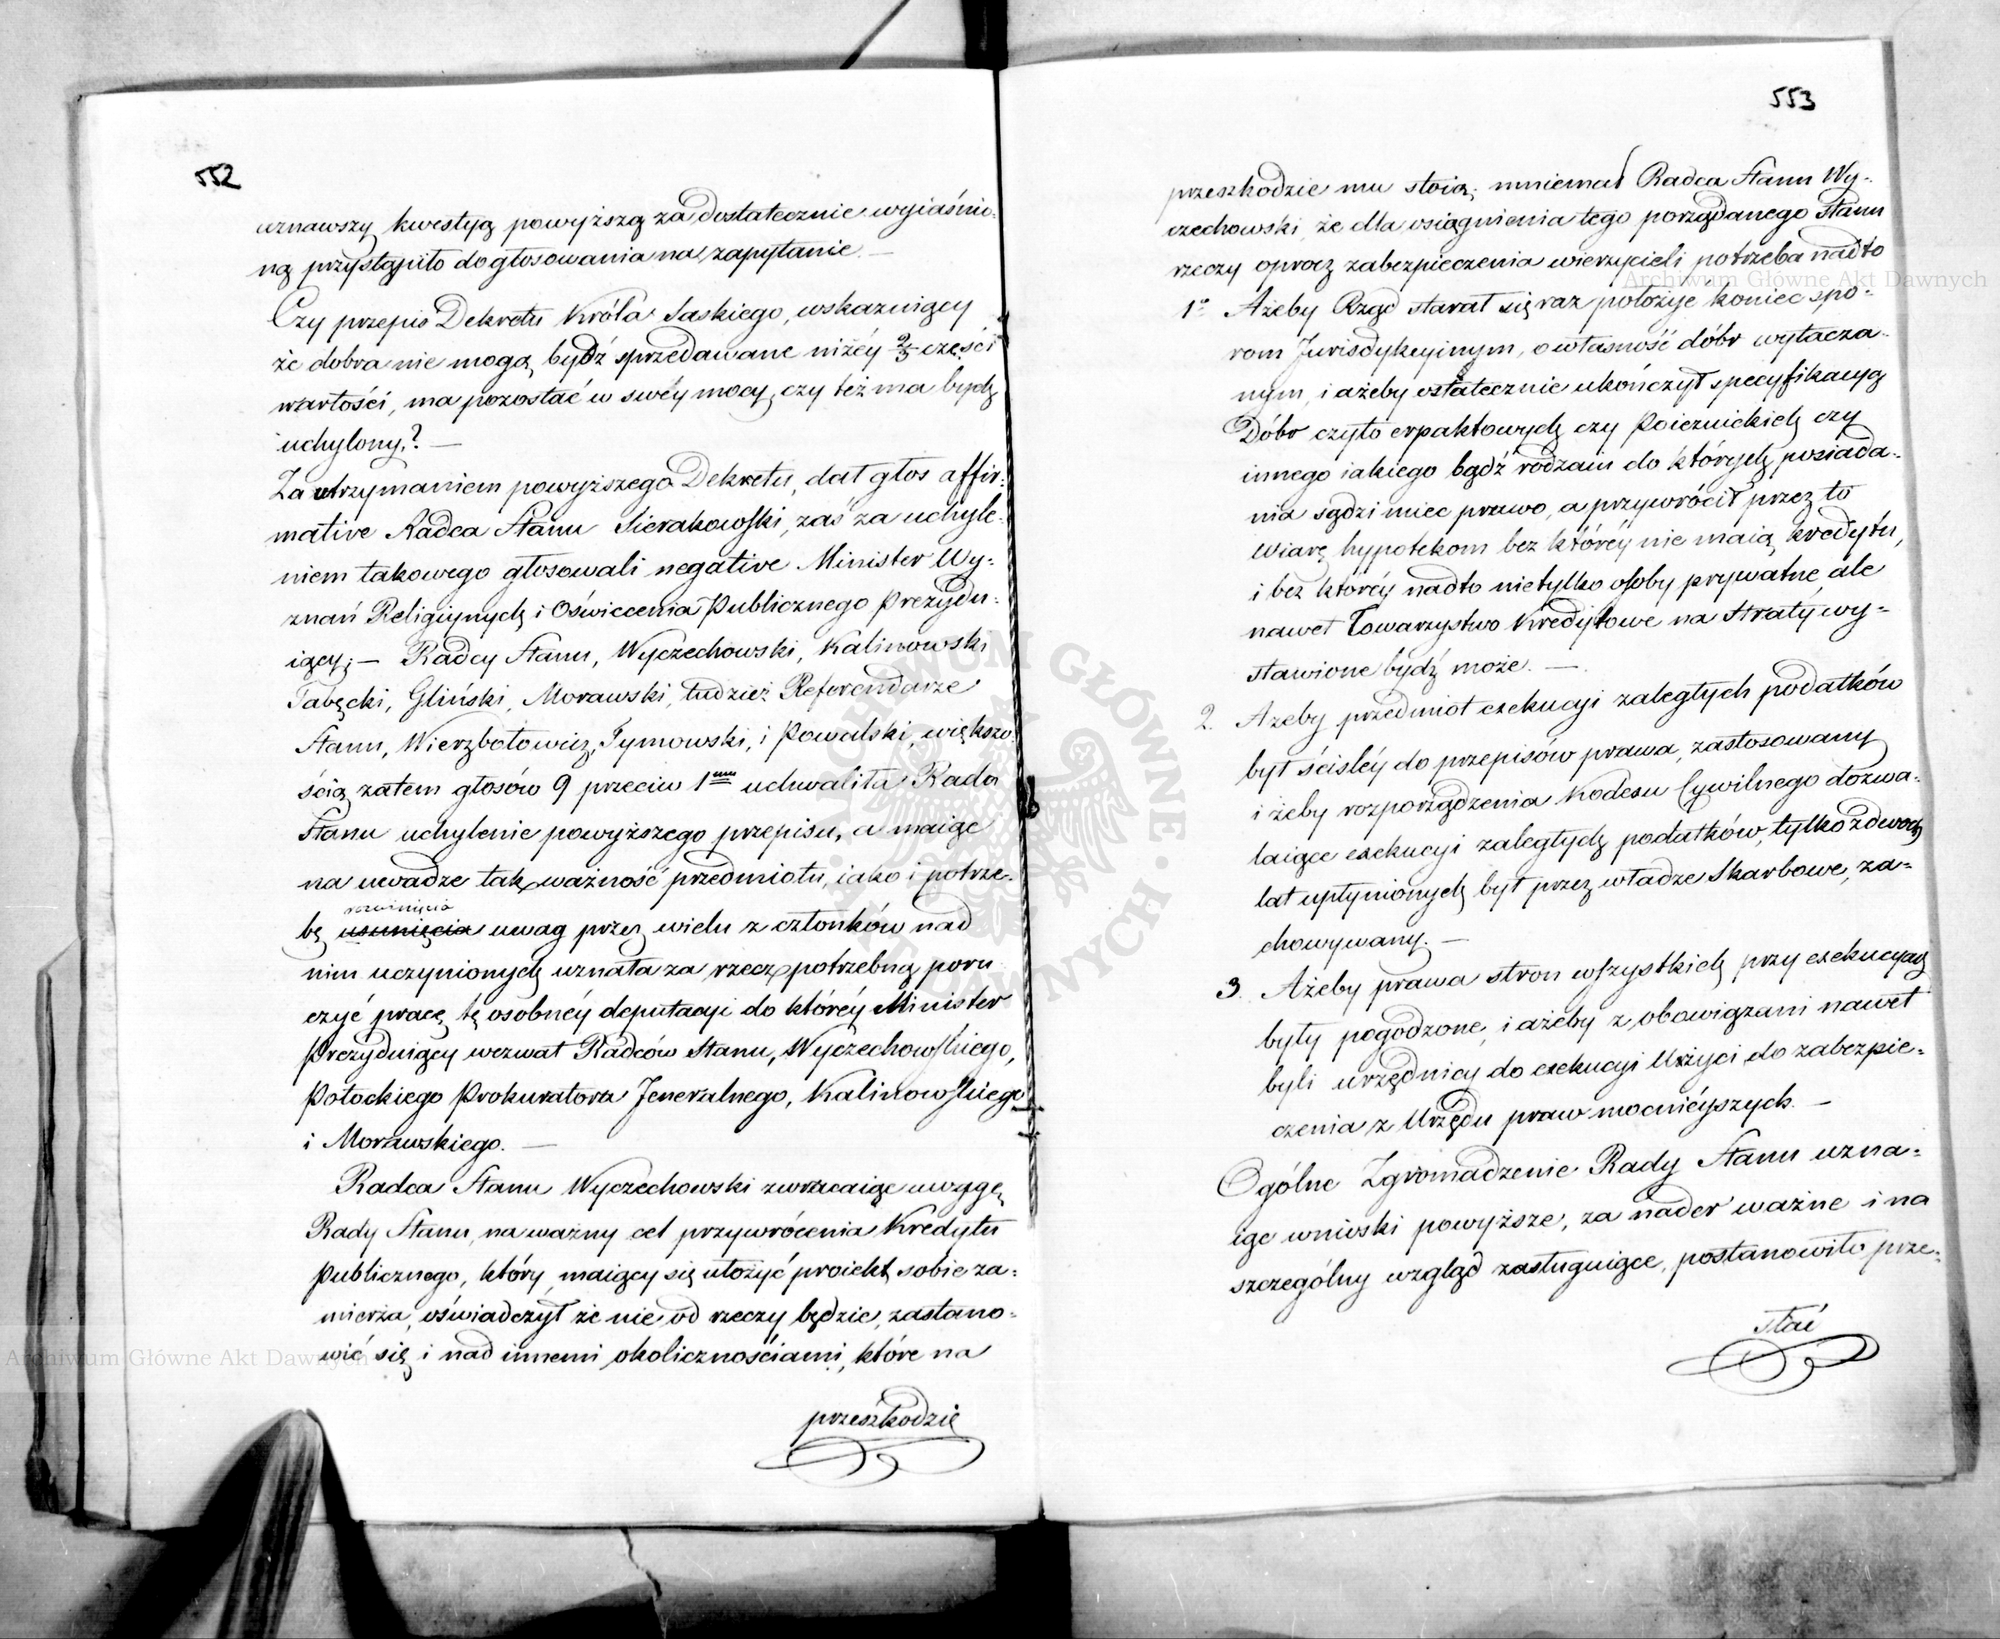 552
uznawszy kwestyą powyższą za dostatecznie wyiaśnio-
ną przystąpiło do głosowania na zapytanie. —
Czy przepis Dekretu Króla Saskiego, wskazuiący
że dobra nie mogą bydź sprzedawane niżéy 2/3 części
wartości, ma pozostać w swéy mocy, czy też ma bydź
uchylony? —
Za utrzymaniem powyższego Dekretu, dał głos affir-
mative Radca Stanu Sierakowski, zaś za uchyle-
niem takowego głosowali negative Minister Wy-
znań Religiynych i Oświecenia Publicznego Prezydu-
iący; — Radcy Stanu, Wyczechowski, Kalinowski
Tabęcki, Gliński, Morawski, tudzież Referendarze
Stanu, Wierzbołowicz, Tymowski, i Powalski, większo-
ścią zatem głosów 9 przeciw 1mu uchwaliła Rada
Stanu uchylenie powyższego przepisu, a maiąc
na uwadze tak ważność przedmiotu, iako i potrze-
rozwinięcia
bę usunięcia uwag przez wielu z członków nad
nim uczynionych uznała za rzecz potrzebną poru
czyć pracę tę osobnéy deputacyi do któréy Minister
Prezyduiący wezwał Radców Stanu, Wyczechowskiego,
Potockiego Prokuratora Jeneralnego, Kalinowskiego
i Morawskiego. —
Radca Stanu Wyczechowski zwracaiąc uwagę
Rady Stanu, na ważny cel przywrócenia Kredytu
Publicznego, który maiący się ułożyć proiekt sobie za-
mierza, oświadczył że nie od rzeczy będzie, zastano-
wić się i nad innemi okolicznościami, które na
przeszkodzie
553
przeszkodzie mu stoią; mniemał Radca Stanu Wy-
czechowski, że dla osiągnienia tego porządanego Stanu
rzeczy oprócz zabezpieczenia wierzycieli potrzeba nadto
1° Ażeby Rząd starał się raz położyć koniec spo-
rom Jurisdykcyinym, o własność dóbr wytacza-
nym, i ażeby ostatecznie ukończył specyfikacyą
Dóbr czyto erpaktowych czy Poiezuickich czy
innego iakiego bądź rodzaiu do których posiada-
nia sądzi mieć prawo, a przywrócił przez to
wiarę hypotekom bez któréy nie maią kredytu,
i bez któréy nadto nietylko osoby prywatne, ale
nawet Towarzystwo Kredytowe na straty wy-
stawione bydź może. —
2. Ażeby przedmiot exekucyi zaległych podatków
był ściśléy do przepisów prawa, zastosowany
i żeby rozporządzenia Kodexu Cywilnego dozwa-
laiące exekucyi zaległych podatków, tylko z dwóch
lat upłynionych był przez władze Skarbowe, za-
chowywany. —
3. Ażeby prawa stron wszystkich przy exekucyach
były pogodzone, i ażeby z obowiązani nawet
byli urzędnicy do exekucyi użyci, do zabezpie-
czenia z Urzędu praw mocnieyszych. —
Ogólne Zgromadzenie Rady Stanu uzna-
iąc wnioski powyższe, za nader ważne i na
szczególny wzgląd zasługuiące, postanowiło prze-
słać
Archiwum Główne Akt Dawnych
Archiwum Główne Akt Dawnych
ARCHIWUM GŁÓWNE AKT DAWNYCH